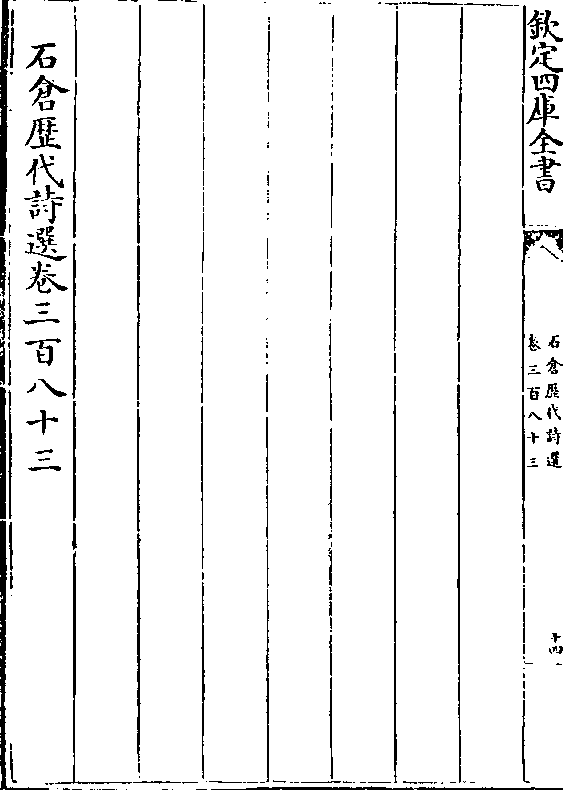 欽定四庫全書
石倉歴代詩選
卷三百八十三
十四
石倉歴代詩選卷三百八十三